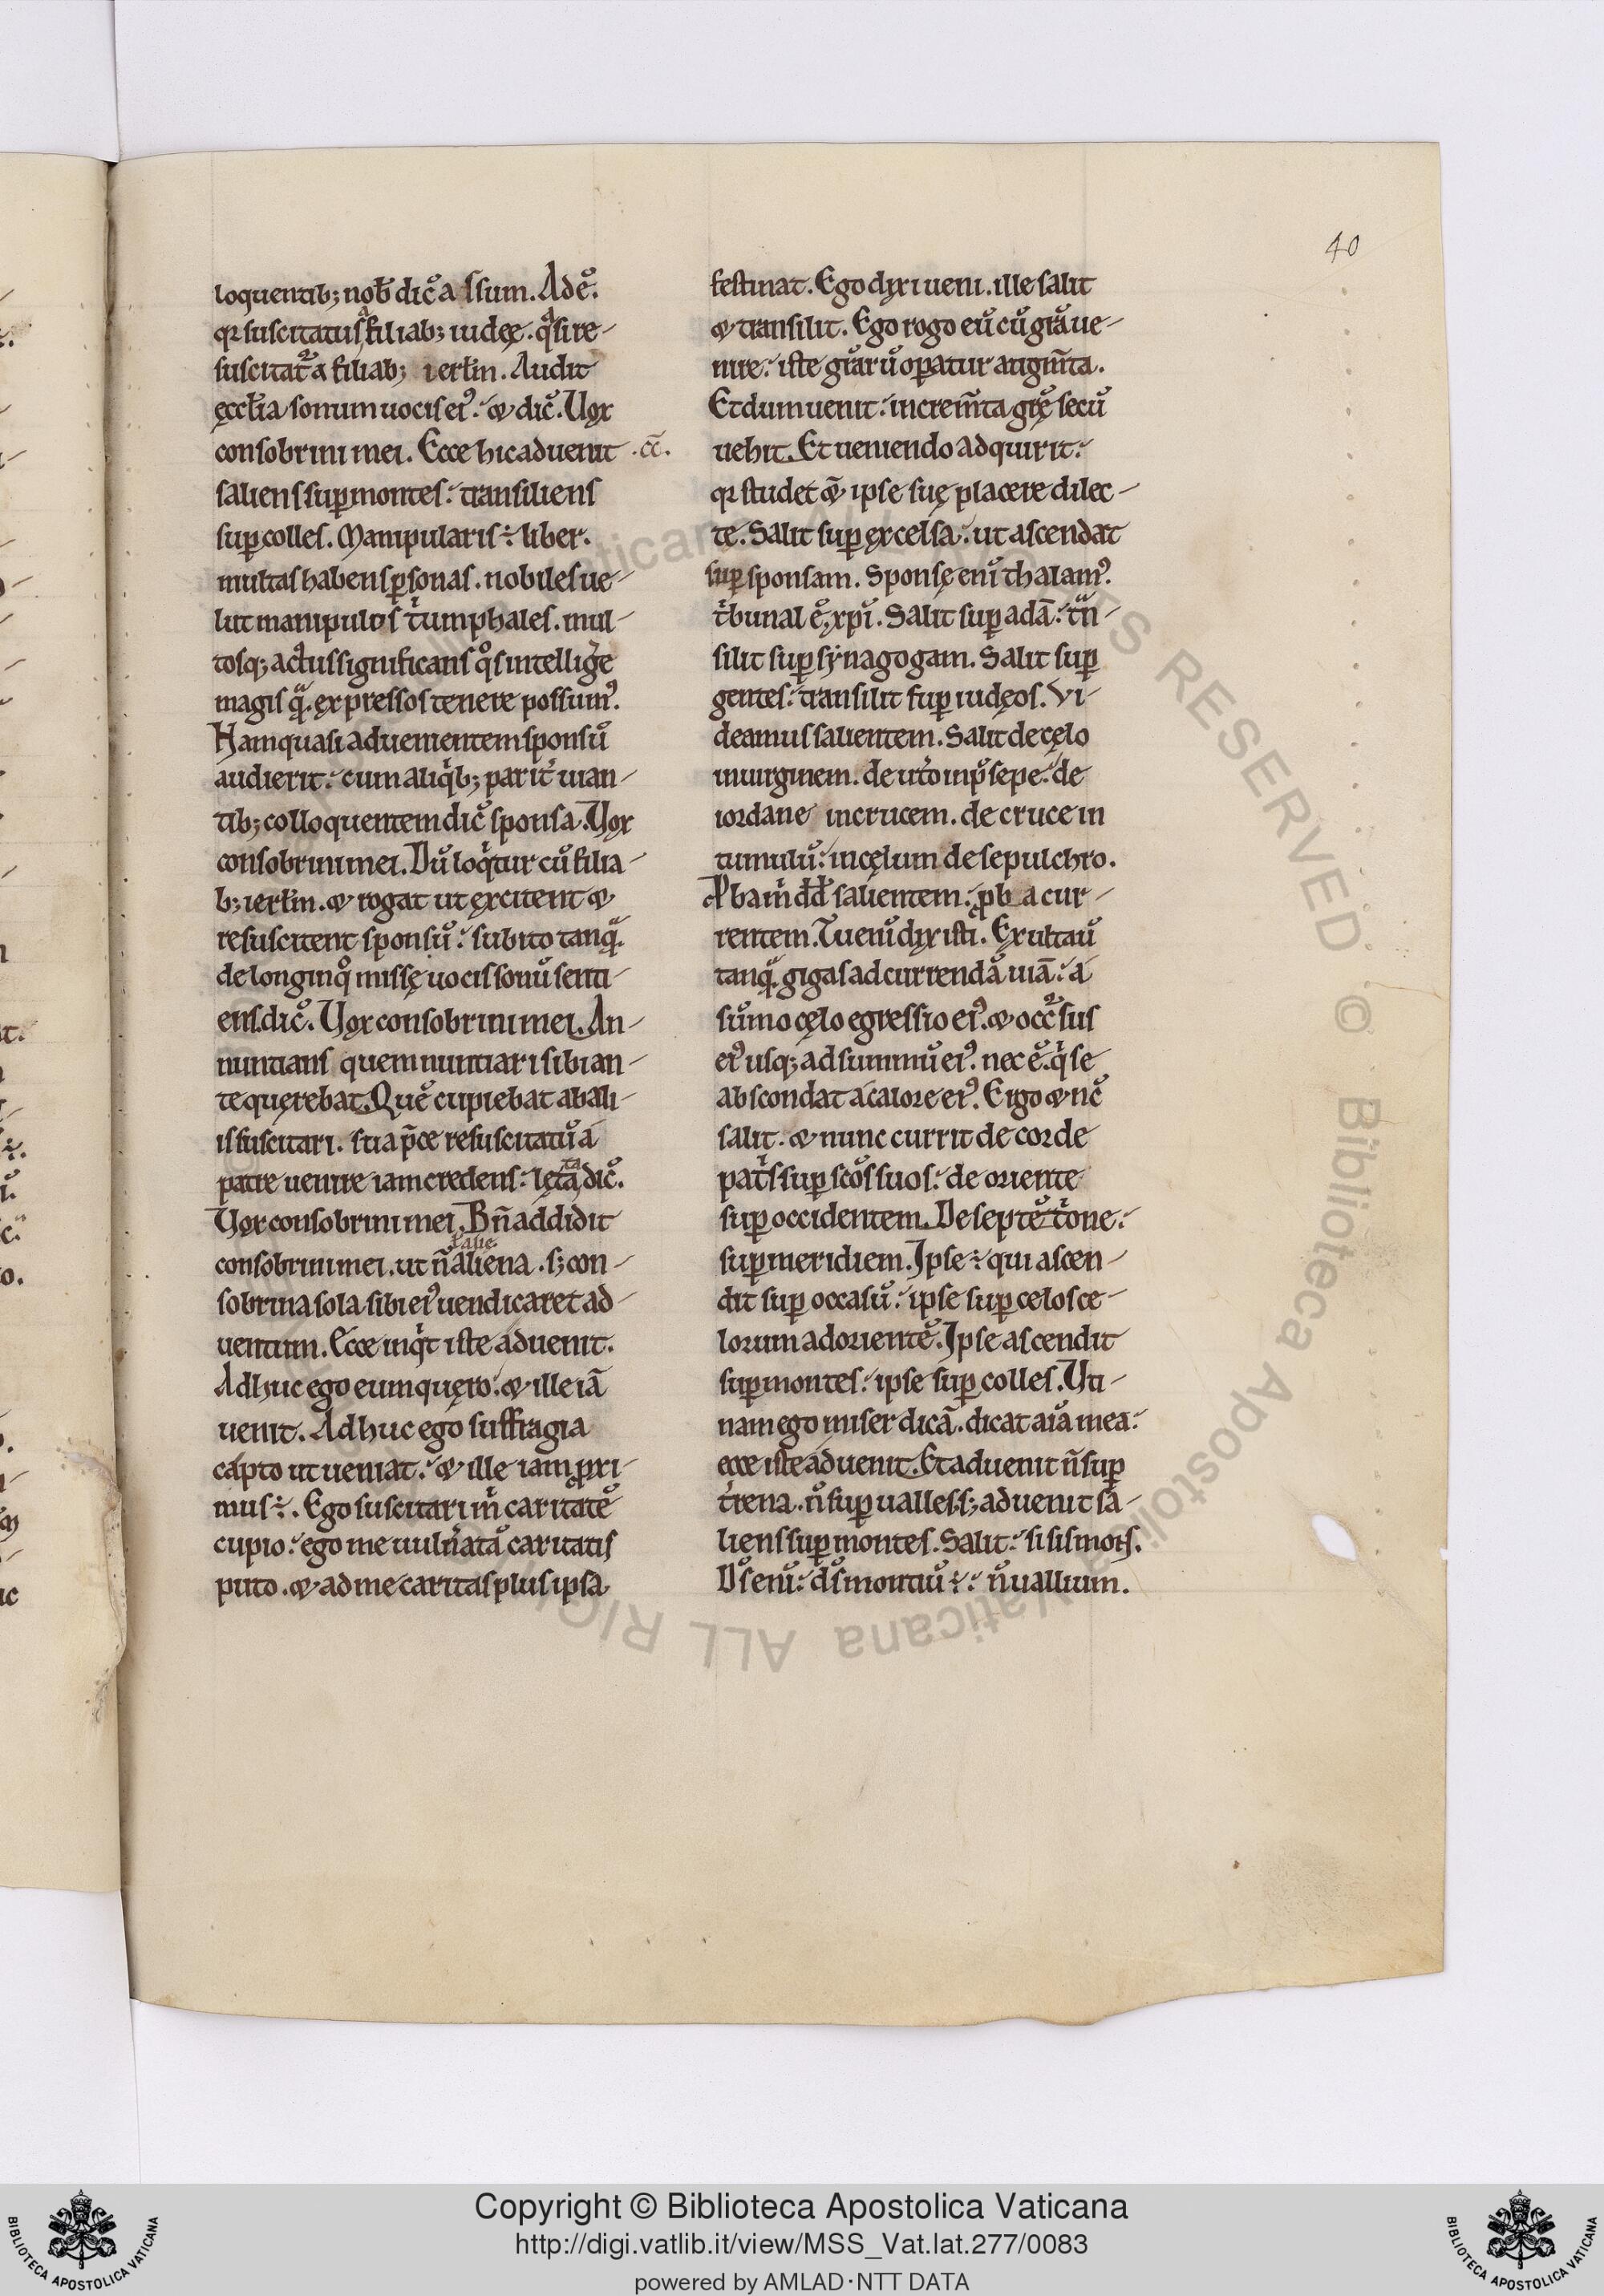 40
loquentib; nob̄ dic̄ assum. Adē.
qꝛ suscitatus a filiab; iudeę. qͣsi re-
suscitat᷑ a filiab; ierłm. Audit
ęccłia sonum uocis ei᷒. ⁊ dic̄. Vox
consobrini mei. Ecce hic aduenit .cc̄.
saliens suꝑ montes. transiliens
suꝑ colles. Manipularis ÷ liber.
multas habens ꝑsonas. nobiles ue-
lut manipulos tͥumphales. mul-
tosq; actus significans qͦs intellig̾e
magis qͣ. expressos tenere possum᷒.
Nam quasi aduenientem sponsū
audierit. cum aliqͥb; parit̾ uian-
tib; colloquentem dic̄ sponsa. Vox
consobrini mei. Dū loqͥtur cū filia-
b; ierłm. ⁊ rogat ut excitent ⁊
resuscitent sponsū. subito tanqͣ.
de longinqͦ missę uocis sonū senti-
ens. dic̄. Vox consobrini mei. An-
nuntians quem nuntiari sibi an-
te querebat. Quē cupiebat ab ali-
is suscitari. sua p̄ce resuscitatū a
patre uenire iam credens. lęta dic̄.
Vox consobrini mei. Bn̄ addidit
consobrini mei. ut n̄ aliena. s; con-
sobrina sola sibi ei᷒ uendicaret ad-
uentum. Ecce inqͥt iste aduenit.
Adhuc ego eum quęro. ⁊ ille iā
uenit. Adhuc ego suffragia
capto ut ueniat. ⁊ ille iam ꝓxi-
mus ÷. Ego suscitari mͥ caritatē
cupio. ego me uuln̾atā caritatis
puto. ⁊ ad me caritas plus ipsa
festinat. Ego dixi ueni. ille salit
⁊ transilit. Ego rogo eū cū grā ue-
nire. iste grārū oꝑatur augm̄ta.
Et dum uenit. increm̄ta gr̄ę secū
uehit. Et ueniendo adquirit.
qꝛ studet ⁊ ipse suę placere dilec-
te. Salit suꝑ excelsa. ut ascendat
suꝑ sponsam. Sponsę enī thalam᷒.
tͥbunal ē xp̄i. Salit suꝑ adā. tͣn-
silit suꝑ synagogam. Salit suꝑ
gentes. transilit suꝑ iudęos. Vi-
deamus salientem. Salit de cęlo
in uirginem. de ut̾o in p̄sepe. de
iordane in crucem. de cruce in
tumulū. in cęlum de sepulchro.
Ꝓba mͥ dd̄ salientem. ꝓba cur-
rentem. Tu enī dixisti. Exultauī
tanqͣ. gigas ad currendā uiā. a
sūmo cęlo egressio ei᷒. ⁊ occ᷑sus
ei᷒ usq; ad summū ei᷒. nec ē. qͥ se
abscondat a calore ei᷒. Ergo ⁊ nc̄
salit. ⁊ nunc currit de corde
patͥs suꝑ scōs suos. de oriente
suꝑ occidentem. De septētͥone.
suꝑ meridiem. Ipse ÷ qui ascen-
dit suꝑ occasū. ipse suꝑ celos ce-
lorum ad orientē. Ipse ascendit
suꝑ montes. ipse suꝑ colles. Vti-
nam ego miser dicā. dicat aīa mea.
ecce iste aduenit. Et aduenit n̄ suꝑ
t̾rena. n̄ suꝑ ualles. s; aduenit sa-
liens suꝑ montes. Salit. si sis mons.
Ds̄ enī. ds̄ montiū ÷. n̄ uallium.
Copyright © Biblioteca Apostolica Vaticana
http://digi.vatlib.it/view/MSS_Vat.lat.277/0083
powered by AMLAD·NTT DATA
BIBLIOTECA APOSTOLICA VATICANA
BIBLIOTECA APOSTOLICA VATICANA